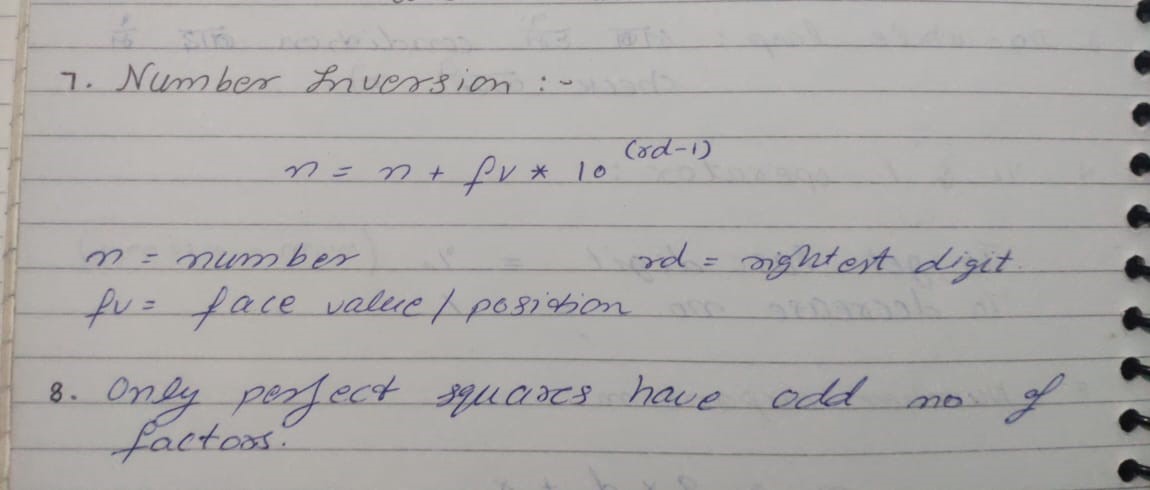 7. Number Inversion :-
n = n + fv * 10^(rd-1)
n = number rd = rightest digit.
fv = face value / position
8. Only perfect squares have odd no of
factors.